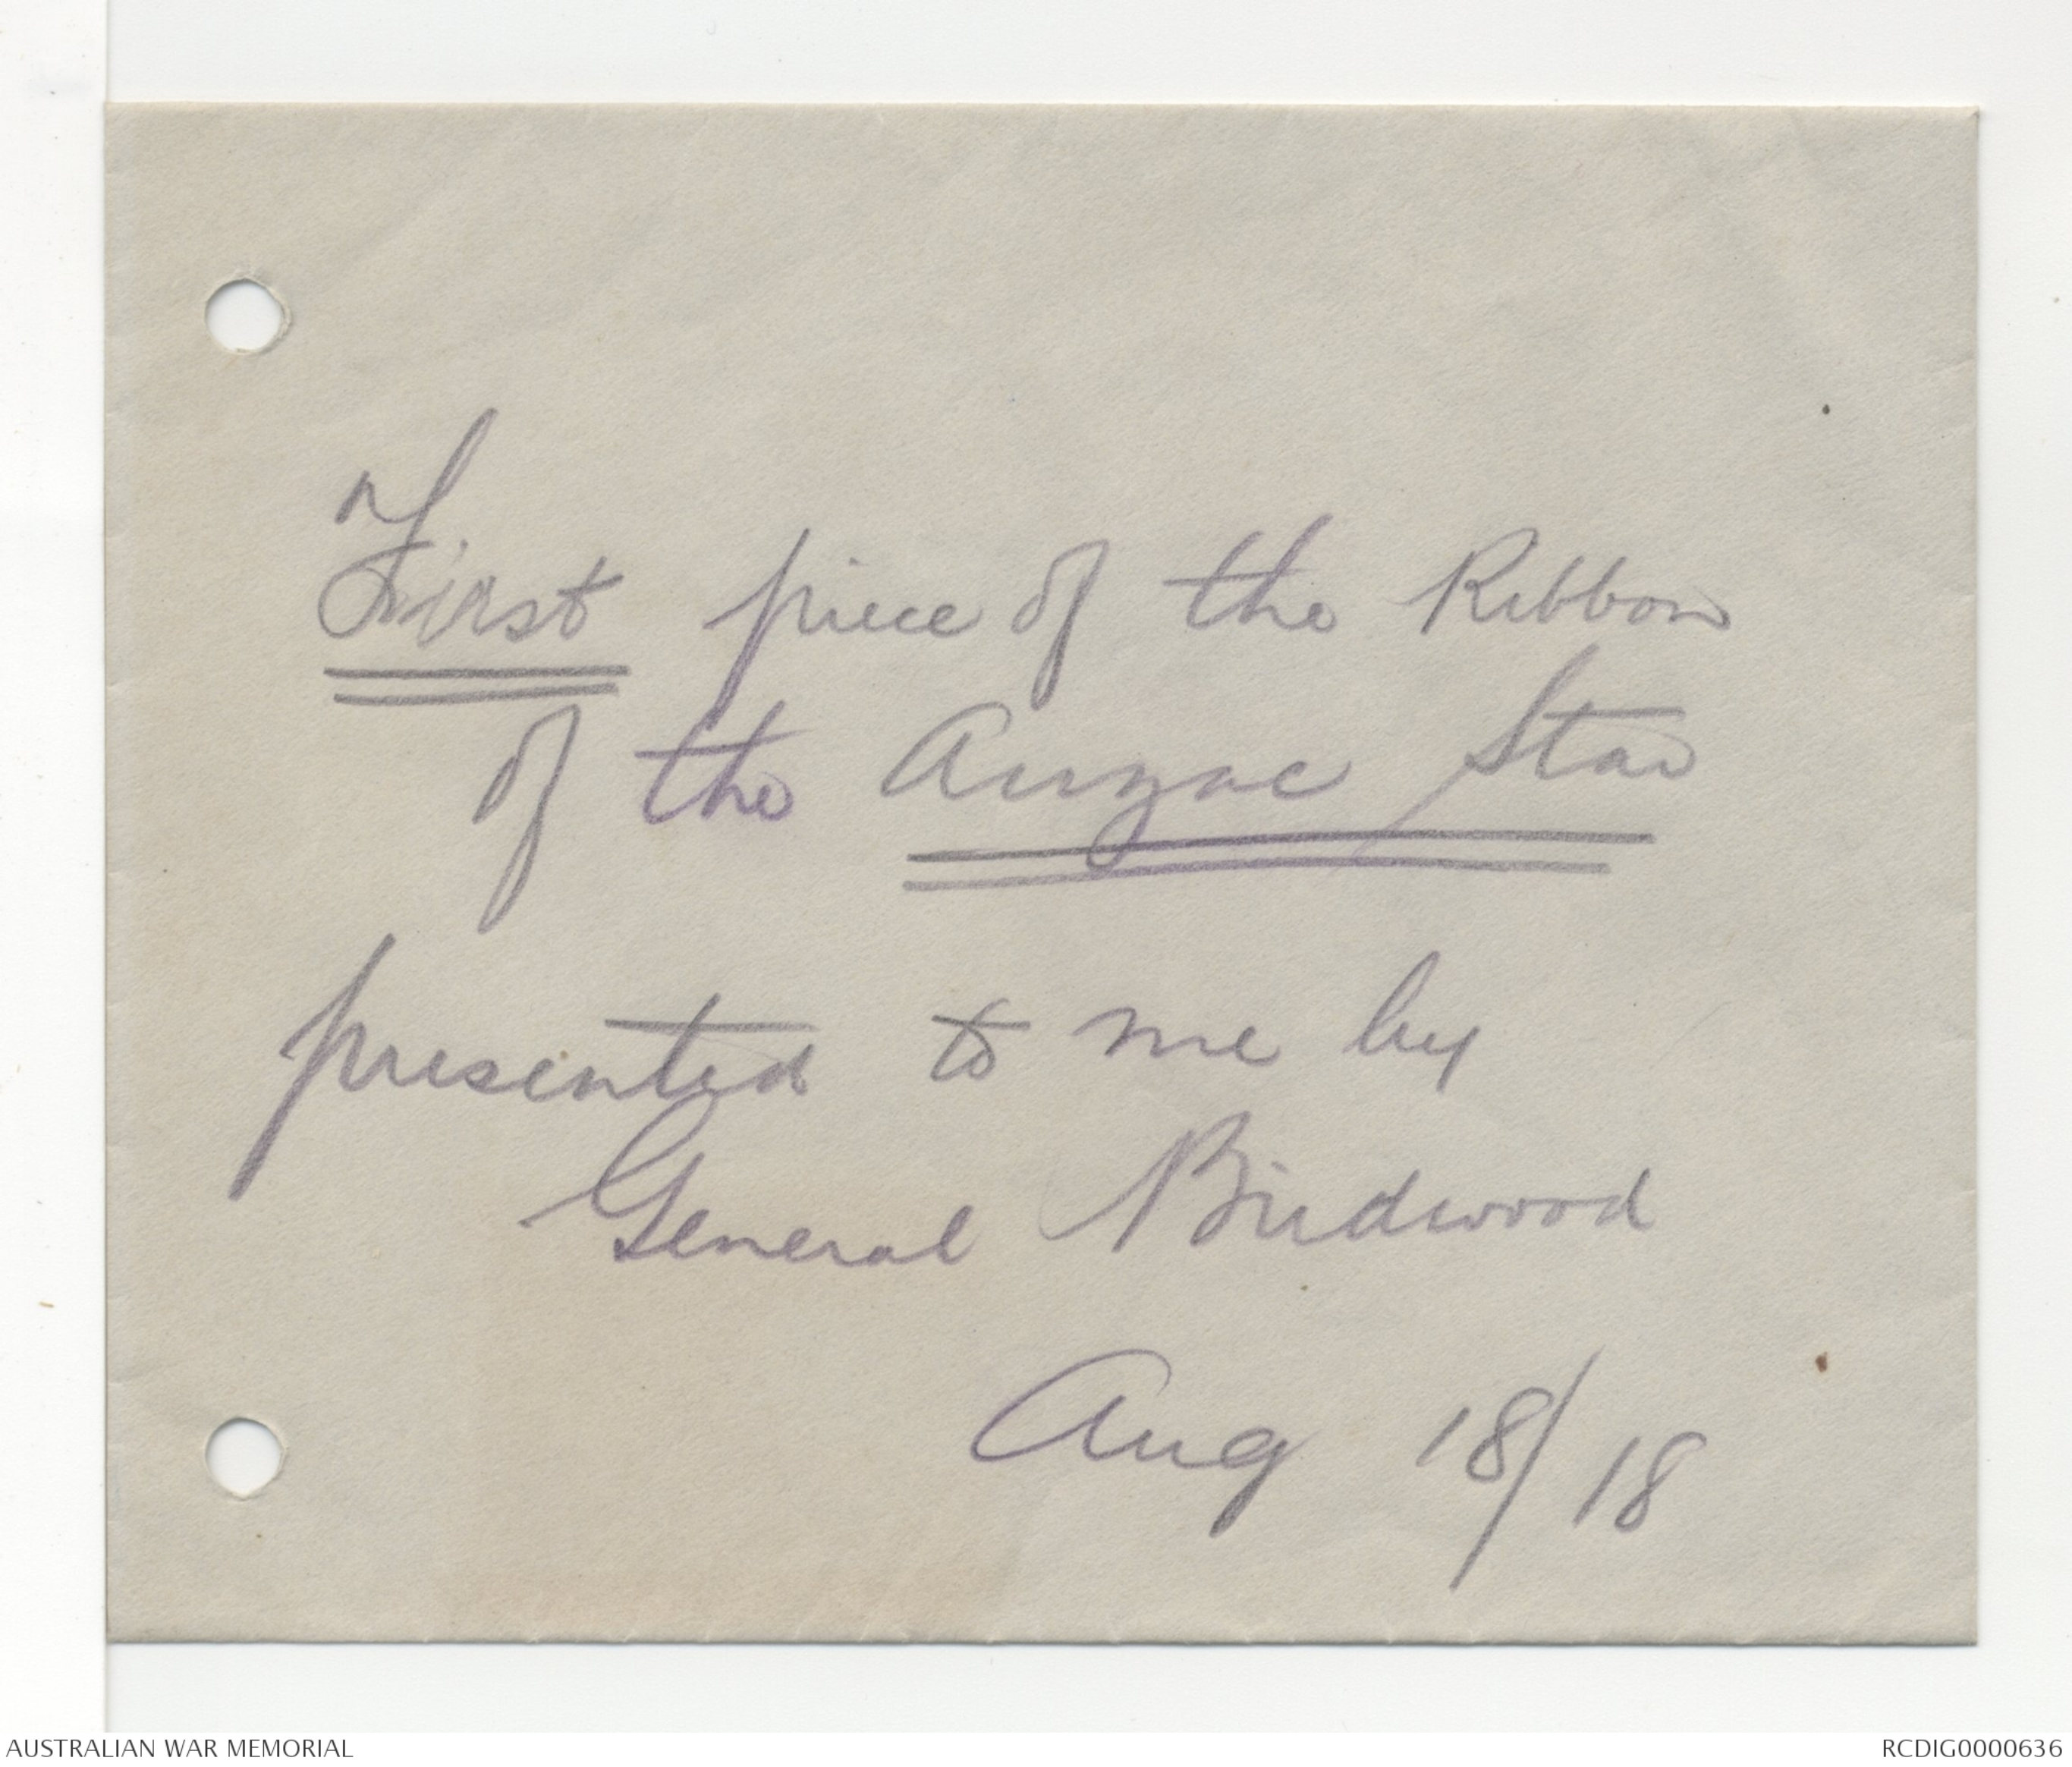 First piece of the Ribbon
of the Anzac Star
presented to me by
General Birdwood
Aug 18/18
AUSTRALIAN WAR MEMORIAL
RCDIG0000636